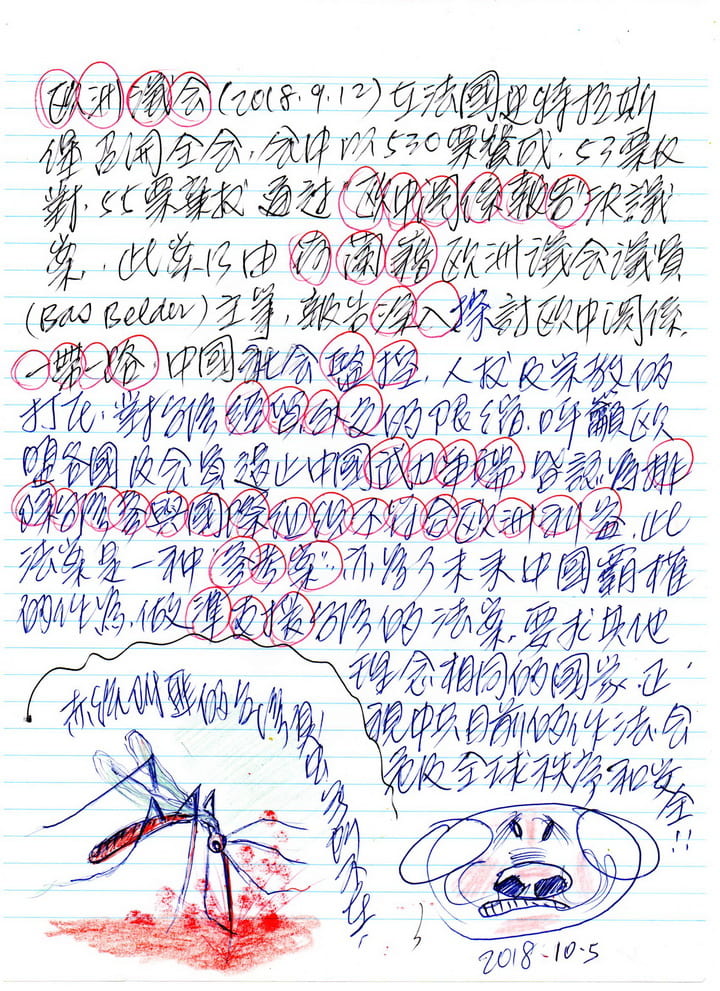 歐洲議会(2018.9.12)在法國史特拉斯
堡召開全会,会中以530票贊成,53票反
對,55票棄权通过“歐中関係報告”決議
案,此案乃由荷蘭籍歐洲議会議員
(Bas Belder)主筆,報告深入探討歐中関係,
一帶一路,中國社会監控,人权及宗教的
打压,對台湾經貿外交的限缩,呼籲歐
盟各國及会員遏止中國武力爭端,皆認為排
除台湾參與國際組织不符合歐洲利益,此
法案是一种“參考案”,亦為了未来中國霸權
的作為,做準支援台湾的法案,要求其他
理念相同的國家,正
視中共目前的作法,会
危及全球秩序和安全!!
2018-10-5